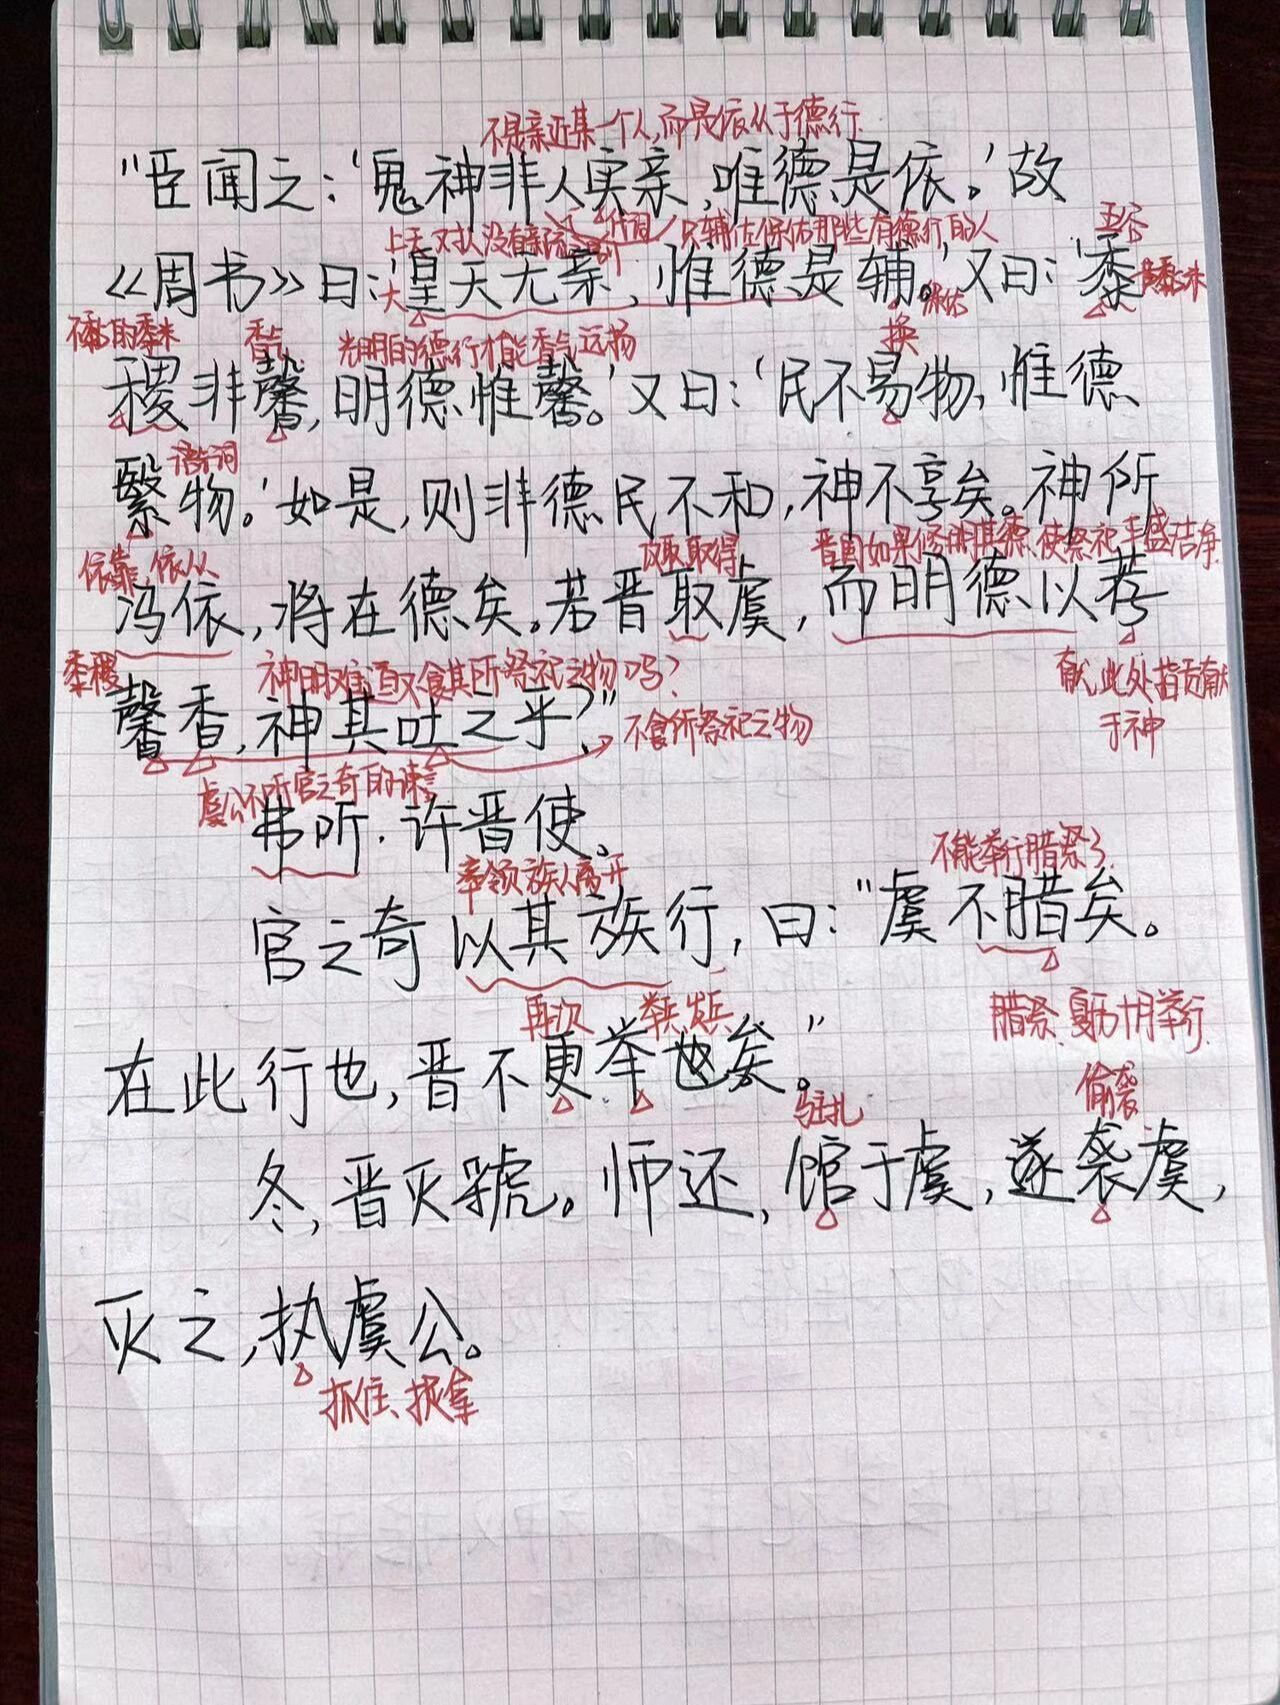 不是亲近某一个人,而是依从于德行.
“臣闻之:‘鬼神非人实亲,唯德是依。’故
上天对人没有亲疏之别 代词 只辅佐保佑那些有德行的人 五谷
《周书》曰:‘皇天无亲,惟德是辅。’又曰:‘黍
大 保佑 黄黏米
不黏的黍米 香气 光明的德行才能香气远扬 换
稷非馨,明德惟馨。’又曰:‘民不易物,惟德
语气词
繄物。’如是,则非德民不和,神不享矣。神所
依靠,依从 攻取取得 晋国如果修明其德、使祭祀丰盛洁净.
冯依,将在德矣。若晋取虞,而明德以荐
黍稷 神明难道不食其所祭祀之物吗? 献,此处指贡献于神
馨香,神其吐之乎?”
不食所祭祀之物
虞公不听宫之奇的谏言
弗听.许晋使。
率领族人离开 不能举行腊祭了.
官之奇以其族行,曰:“虞不腊矣。
再次 举兵,发兵 腊祭.夏历十月举行.
在此行也,晋不更举也矣。”
驻扎 偷袭
冬,晋灭虢。师还,馆于虞,遂袭虞,
灭之,执虞公。
抓住、捉拿